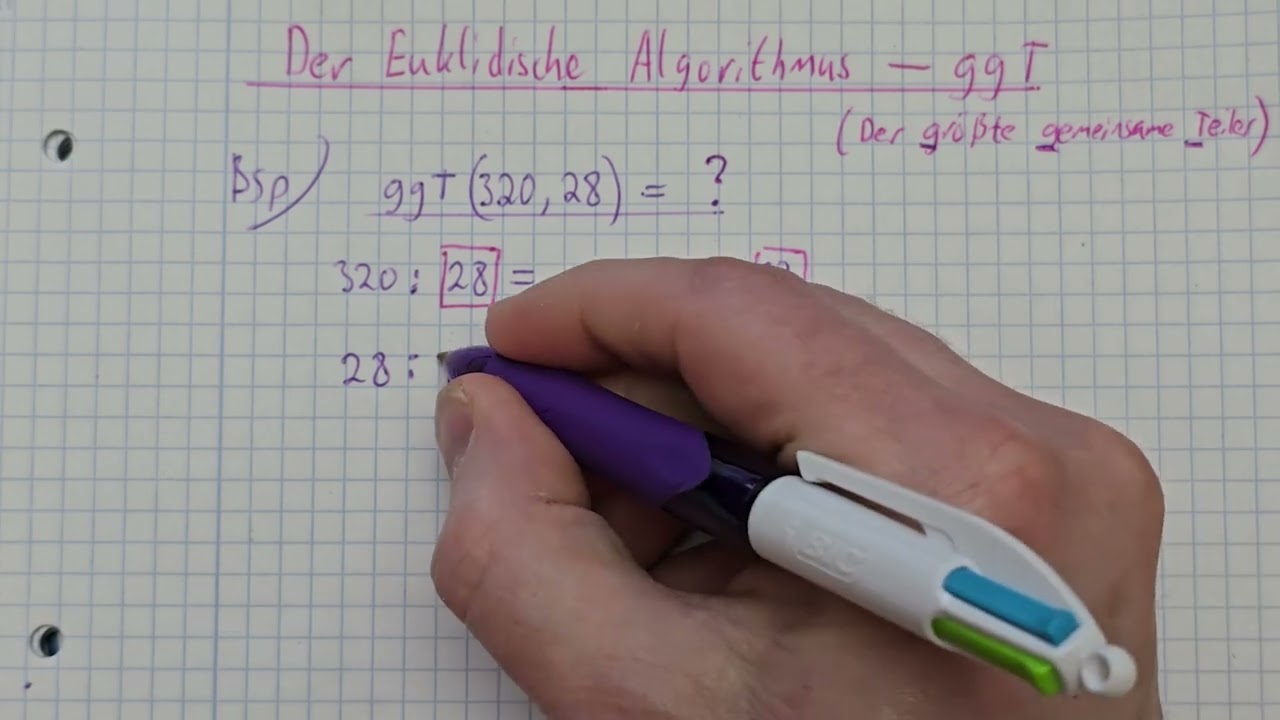 Der Euklidische Algorithmus — ggT
(Der größte gemeinsame Teiler)
Bsp) ggT (320, 28) = ?
320 : 28 =
28 :
BIC